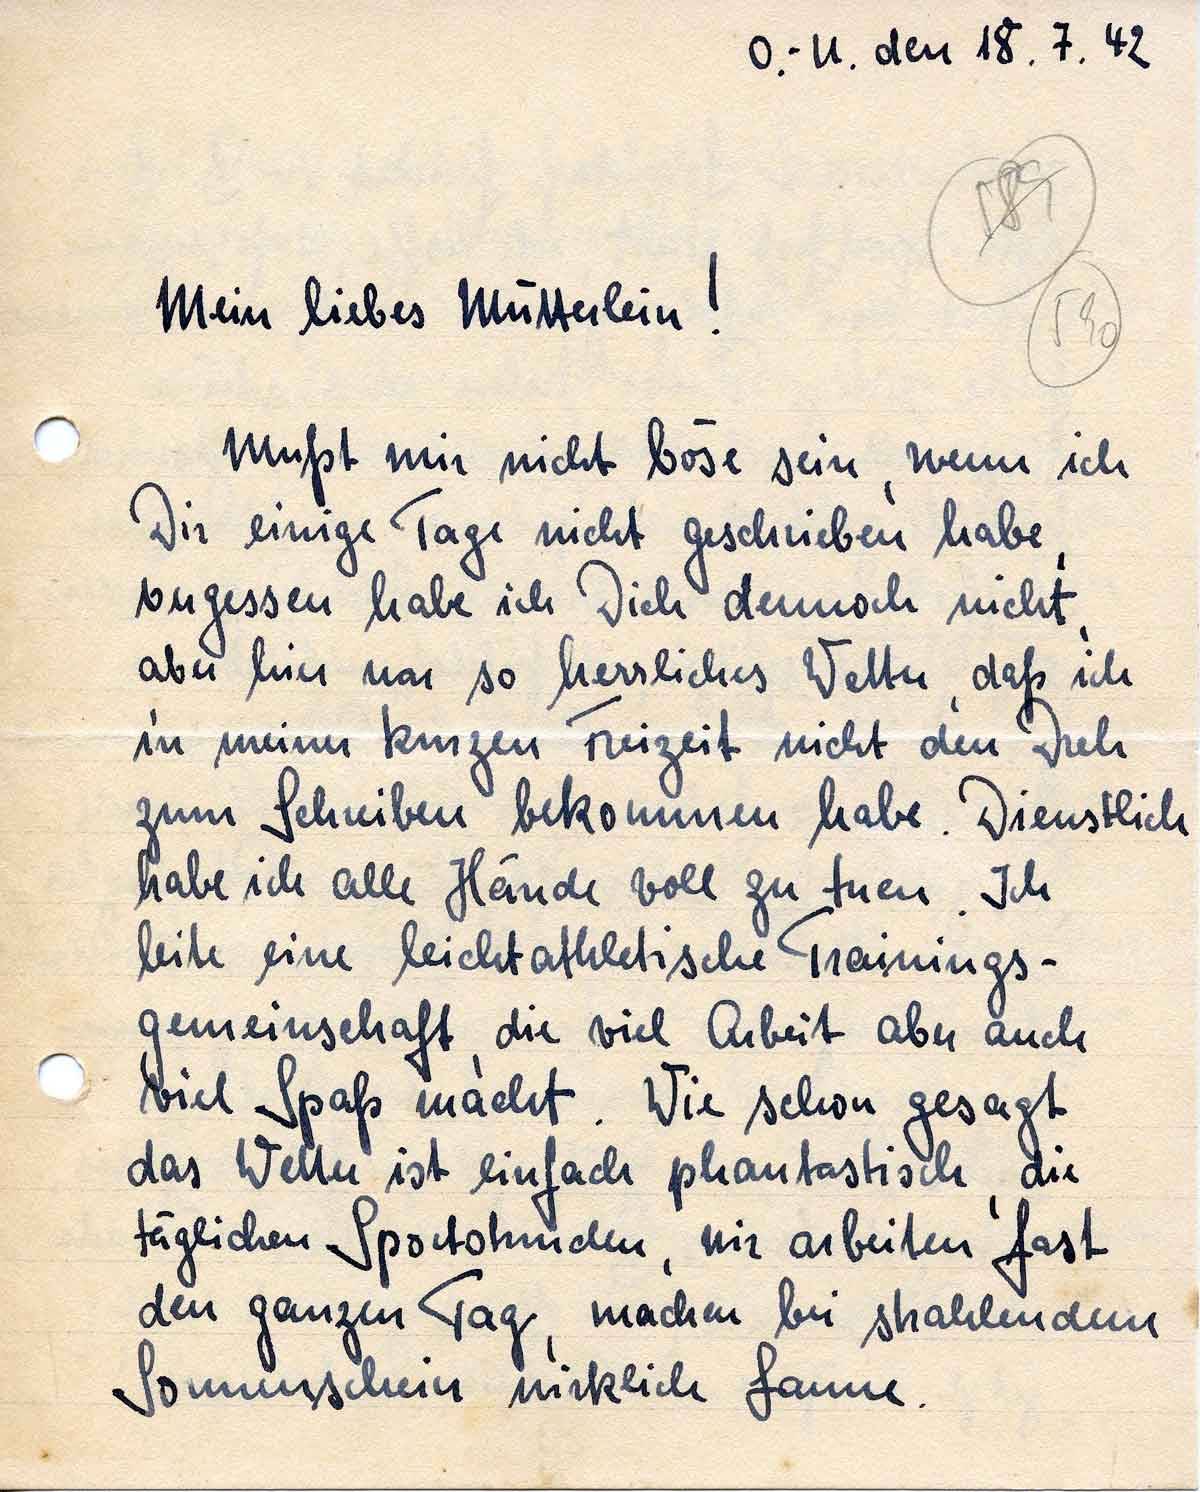 O.-U. den 18. 7. 42
589
590
Mein liebes Mütterlein!
Mußt mir nicht böse sein, wenn ich
Dir einige Tage nicht geschrieben habe,
vergessen habe ich Dich dennoch nicht,
aber hier war so herrliches Wetter, daß ich
in meiner kurzen Freizeit nicht den Dreh
zum Schreiben bekommen habe. Dienstlich
habe ich alle Hände voll zu tuen. Ich
leite eine leichtathletische Trainings-
gemeinschaft, die viel Arbeit aber auch
viel Spaß macht. Wie schon gesagt
das Wetter ist einfach phantastisch, die
täglichen Sportstunden, wir arbeiten fast
den ganzen Tag, machen bei strahlendem
Sonnenschein wirklich Laune.